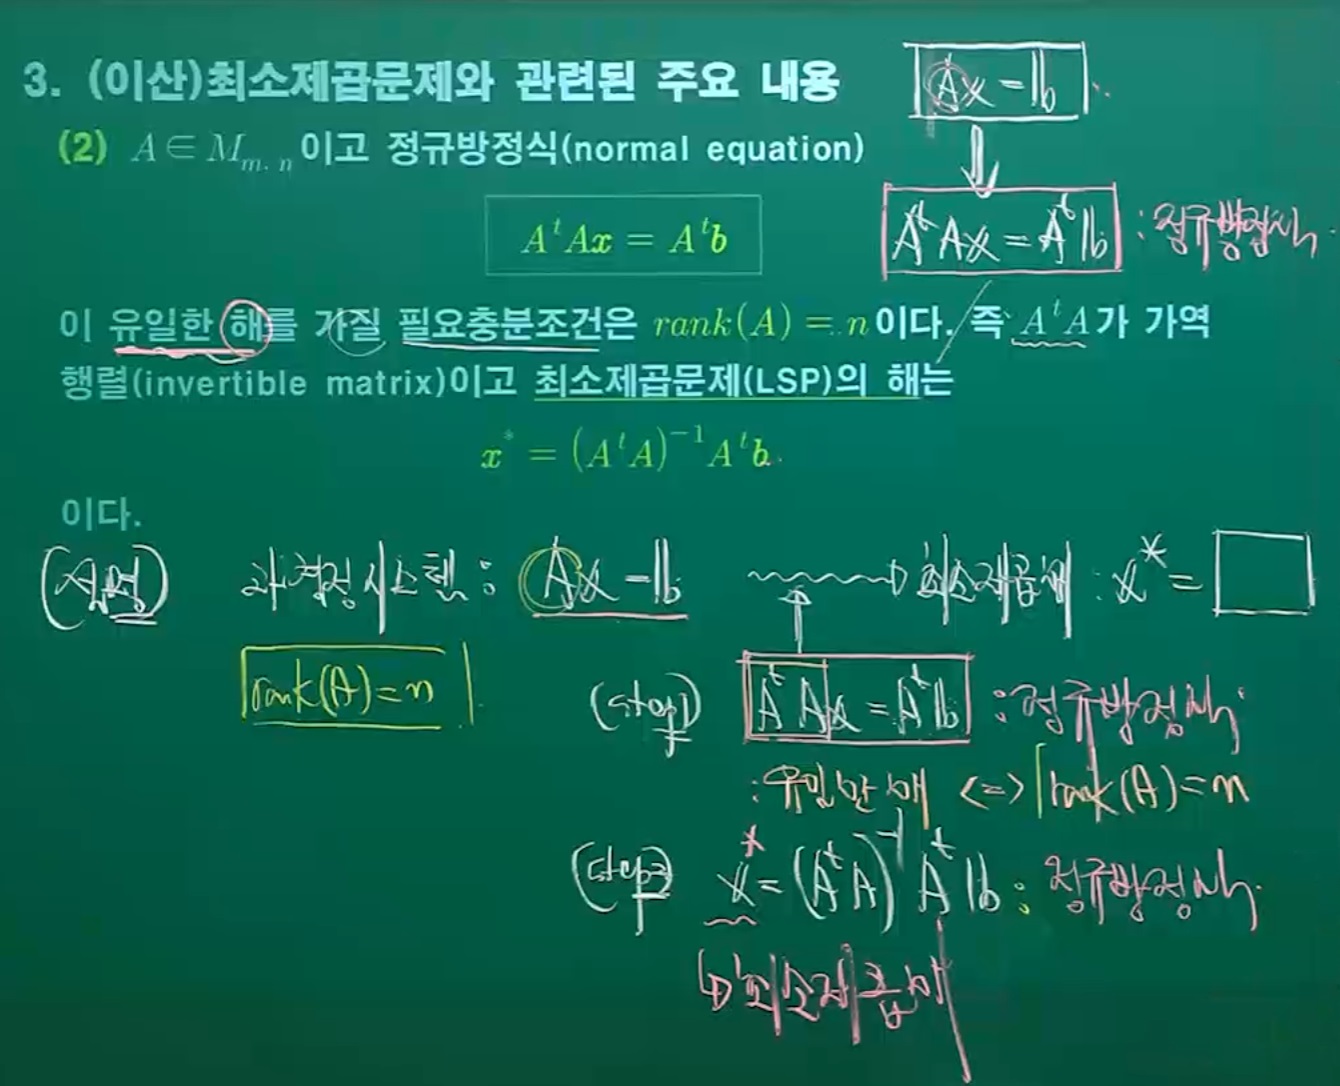 3. (이산)최소제곱문제와 관련된 주요 내용
Ax = b
(2) A ∈ M_{m.n} 이고 정규방정식(normal equation)
AᵗAx = Aᵗb
AᵗAx = Aᵗb : 정규방정식
이 유일한 해를 가질 필요충분조건은 rank(A) = n이다. 즉 AᵗA가 가역
행렬(invertible matrix)이고 최소제곱문제(LSP)의 해는
x* = (AᵗA)⁻¹Aᵗb.
이다.
(설명) 과결정시스템 : Ax = b → 최소제곱해 : x* =
rank(A)=n
(step1) AᵗAx = Aᵗb : 정규방정식
: 유일한 해 <=> rank(A)=n
(step2) x* = (AᵗA)⁻¹Aᵗb : 정규방정식
↳ 최소제곱해